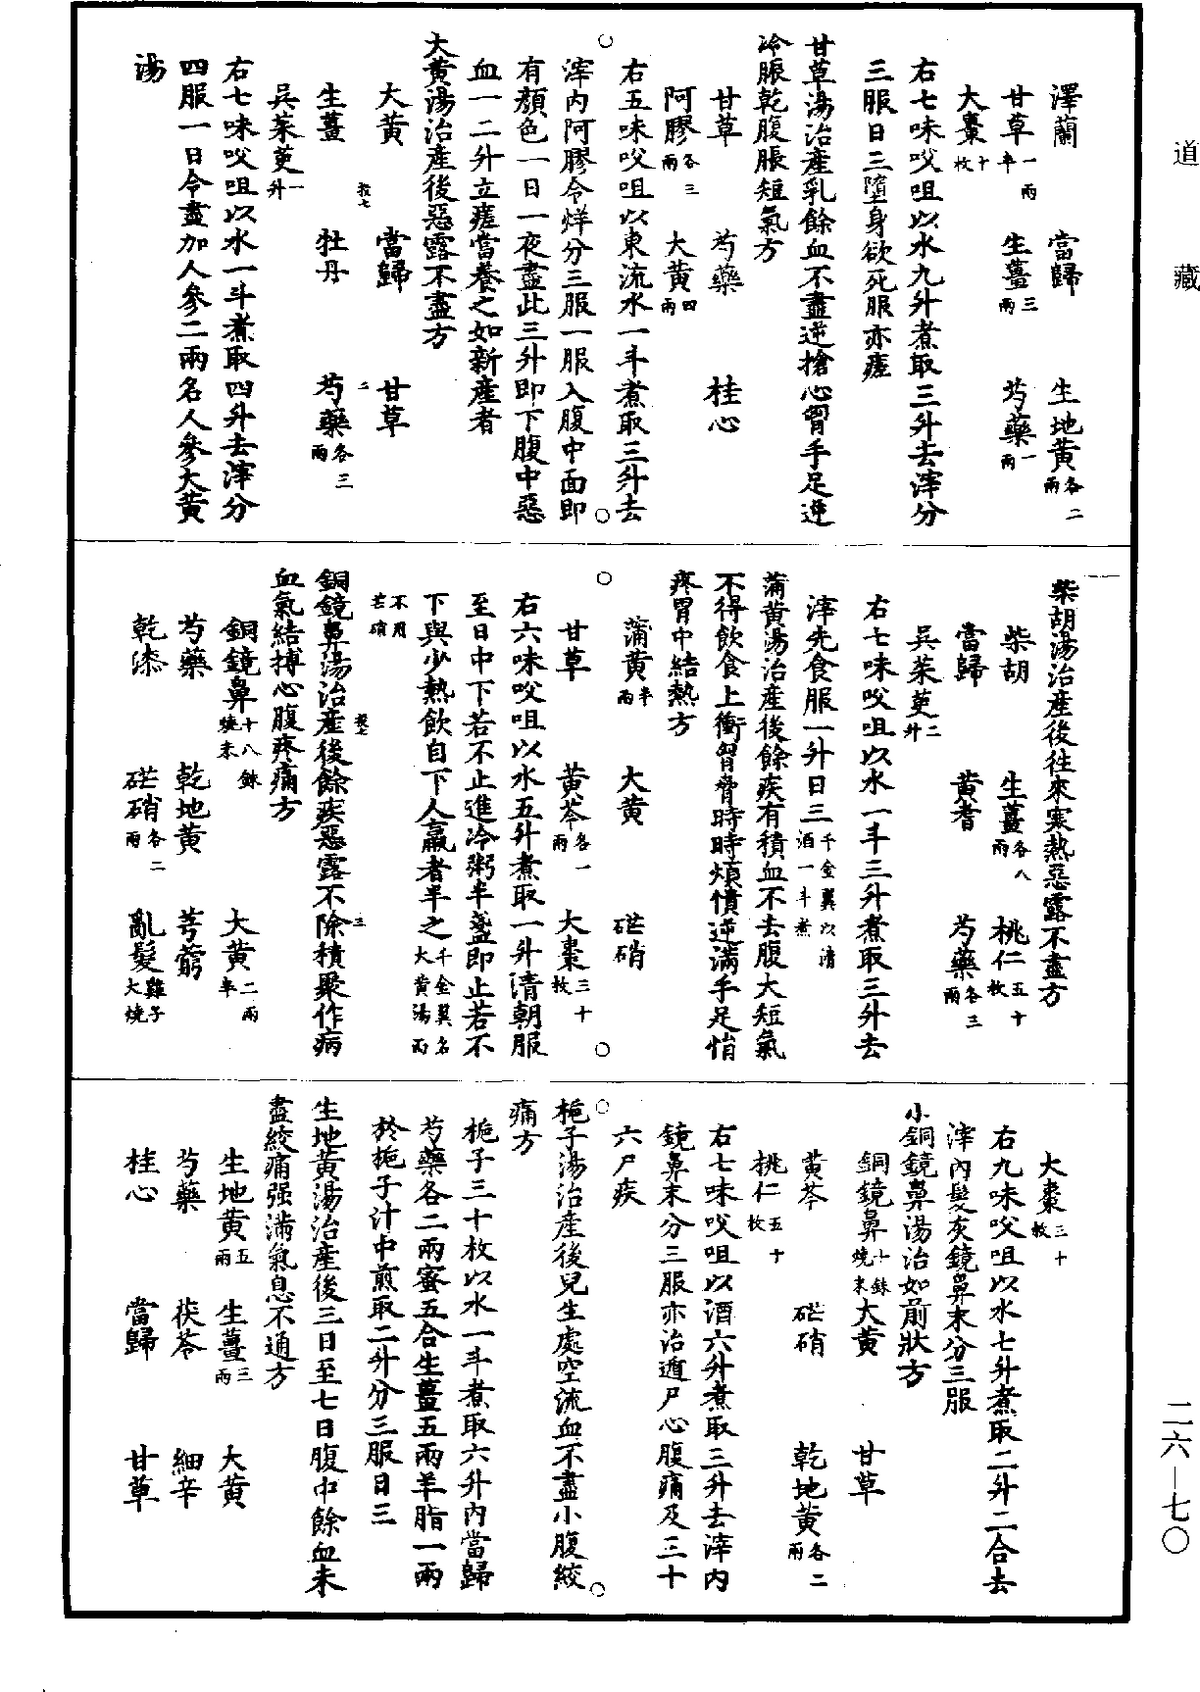 道藏
澤蘭 當歸 生地黃各二兩
甘草一兩半 生薑三兩 芍藥一兩
大棗十枚
右七味㕮咀以水九升煮取三升去滓分
三服日三墮身欲死服亦瘥
甘草湯治產乳餘血不盡逆搶心胷手足逆
冷脹乾腹脹短氣方
甘草 芍藥 桂心
阿膠各三兩 大黃四兩
右五味㕮咀以東流水一斗煮取三升去
滓内阿膠令烊分三服一服入腹中面即
有顏色一日一夜盡此三升即下腹中惡
血一二升立瘥當養之如新產者
大黃湯治產後惡露不盡方
大黃 當歸 甘草
投七 二
生薑 牡丹 芍藥各三兩
吳茱萸一升
右七味㕮咀以水一斗煮取四升去滓分
四服一日令盡加人參二兩名人參大黃
湯
柴胡湯治產後往來寒熱惡露不盡方
柴胡 生薑各八兩 桃仁五十枚
當歸 黃耆 芍藥各三兩
吳茱萸二升
右七味㕮咀以水一斗三升煮取三升去
滓先食服一升日三千金翼以清酒一斗煮
蒲黃湯治產後餘疾有積血不去腹大短氣
不得飲食上衝胷脅時時煩憒逆滿手足悁
疼胃中結熱方
蒲黃半兩 大黃 硭硝
甘草 黃芩各一兩 大棗三十枚
右六味㕮咀以水五升煮取一升清朝服
至日中下若不止進冷粥半盞即止若不
下與少熱飲自下人羸者半之千金翼名大黃湯而
不用芒硝
投七 三
銅鏡鼻湯治產後餘疾惡露不除積聚作病
血氣結搏心腹疼痛方
銅鏡鼻十八銖燒末 大黃二兩半
芍藥 乾地黃 芎藭
乾漆 硭硝各二兩 亂髮雞子大燒
大棗三十枚
右九味㕮咀以水七升煮取二升二合去
滓内髮灰鏡鼻末分三服
小銅鏡鼻湯治如前狀方
銅鏡鼻十銖燒末 大黃 甘草
黃芩 硭硝 乾地黃各二兩
桃仁五十枚
右七味㕮咀以酒六升煮取三升去滓内
鏡鼻末分三服亦治遁尸心腹痛及三十
六尸疾
梔子湯治產後兒生處空流血不盡小腹絞
痛方
梔子三十枚以水一斗煮取六升内當歸
芍藥各二兩蜜五合生薑五兩羊脂一兩
於梔子汁中煎取二升分三服日三
生地黃湯治產後三日至七日腹中餘血未
盡絞痛强滿氣息不通方
生地黃五兩 生薑三兩 大黃
芍藥 茯苓 細辛
桂心 當歸 甘草
二六—七〇